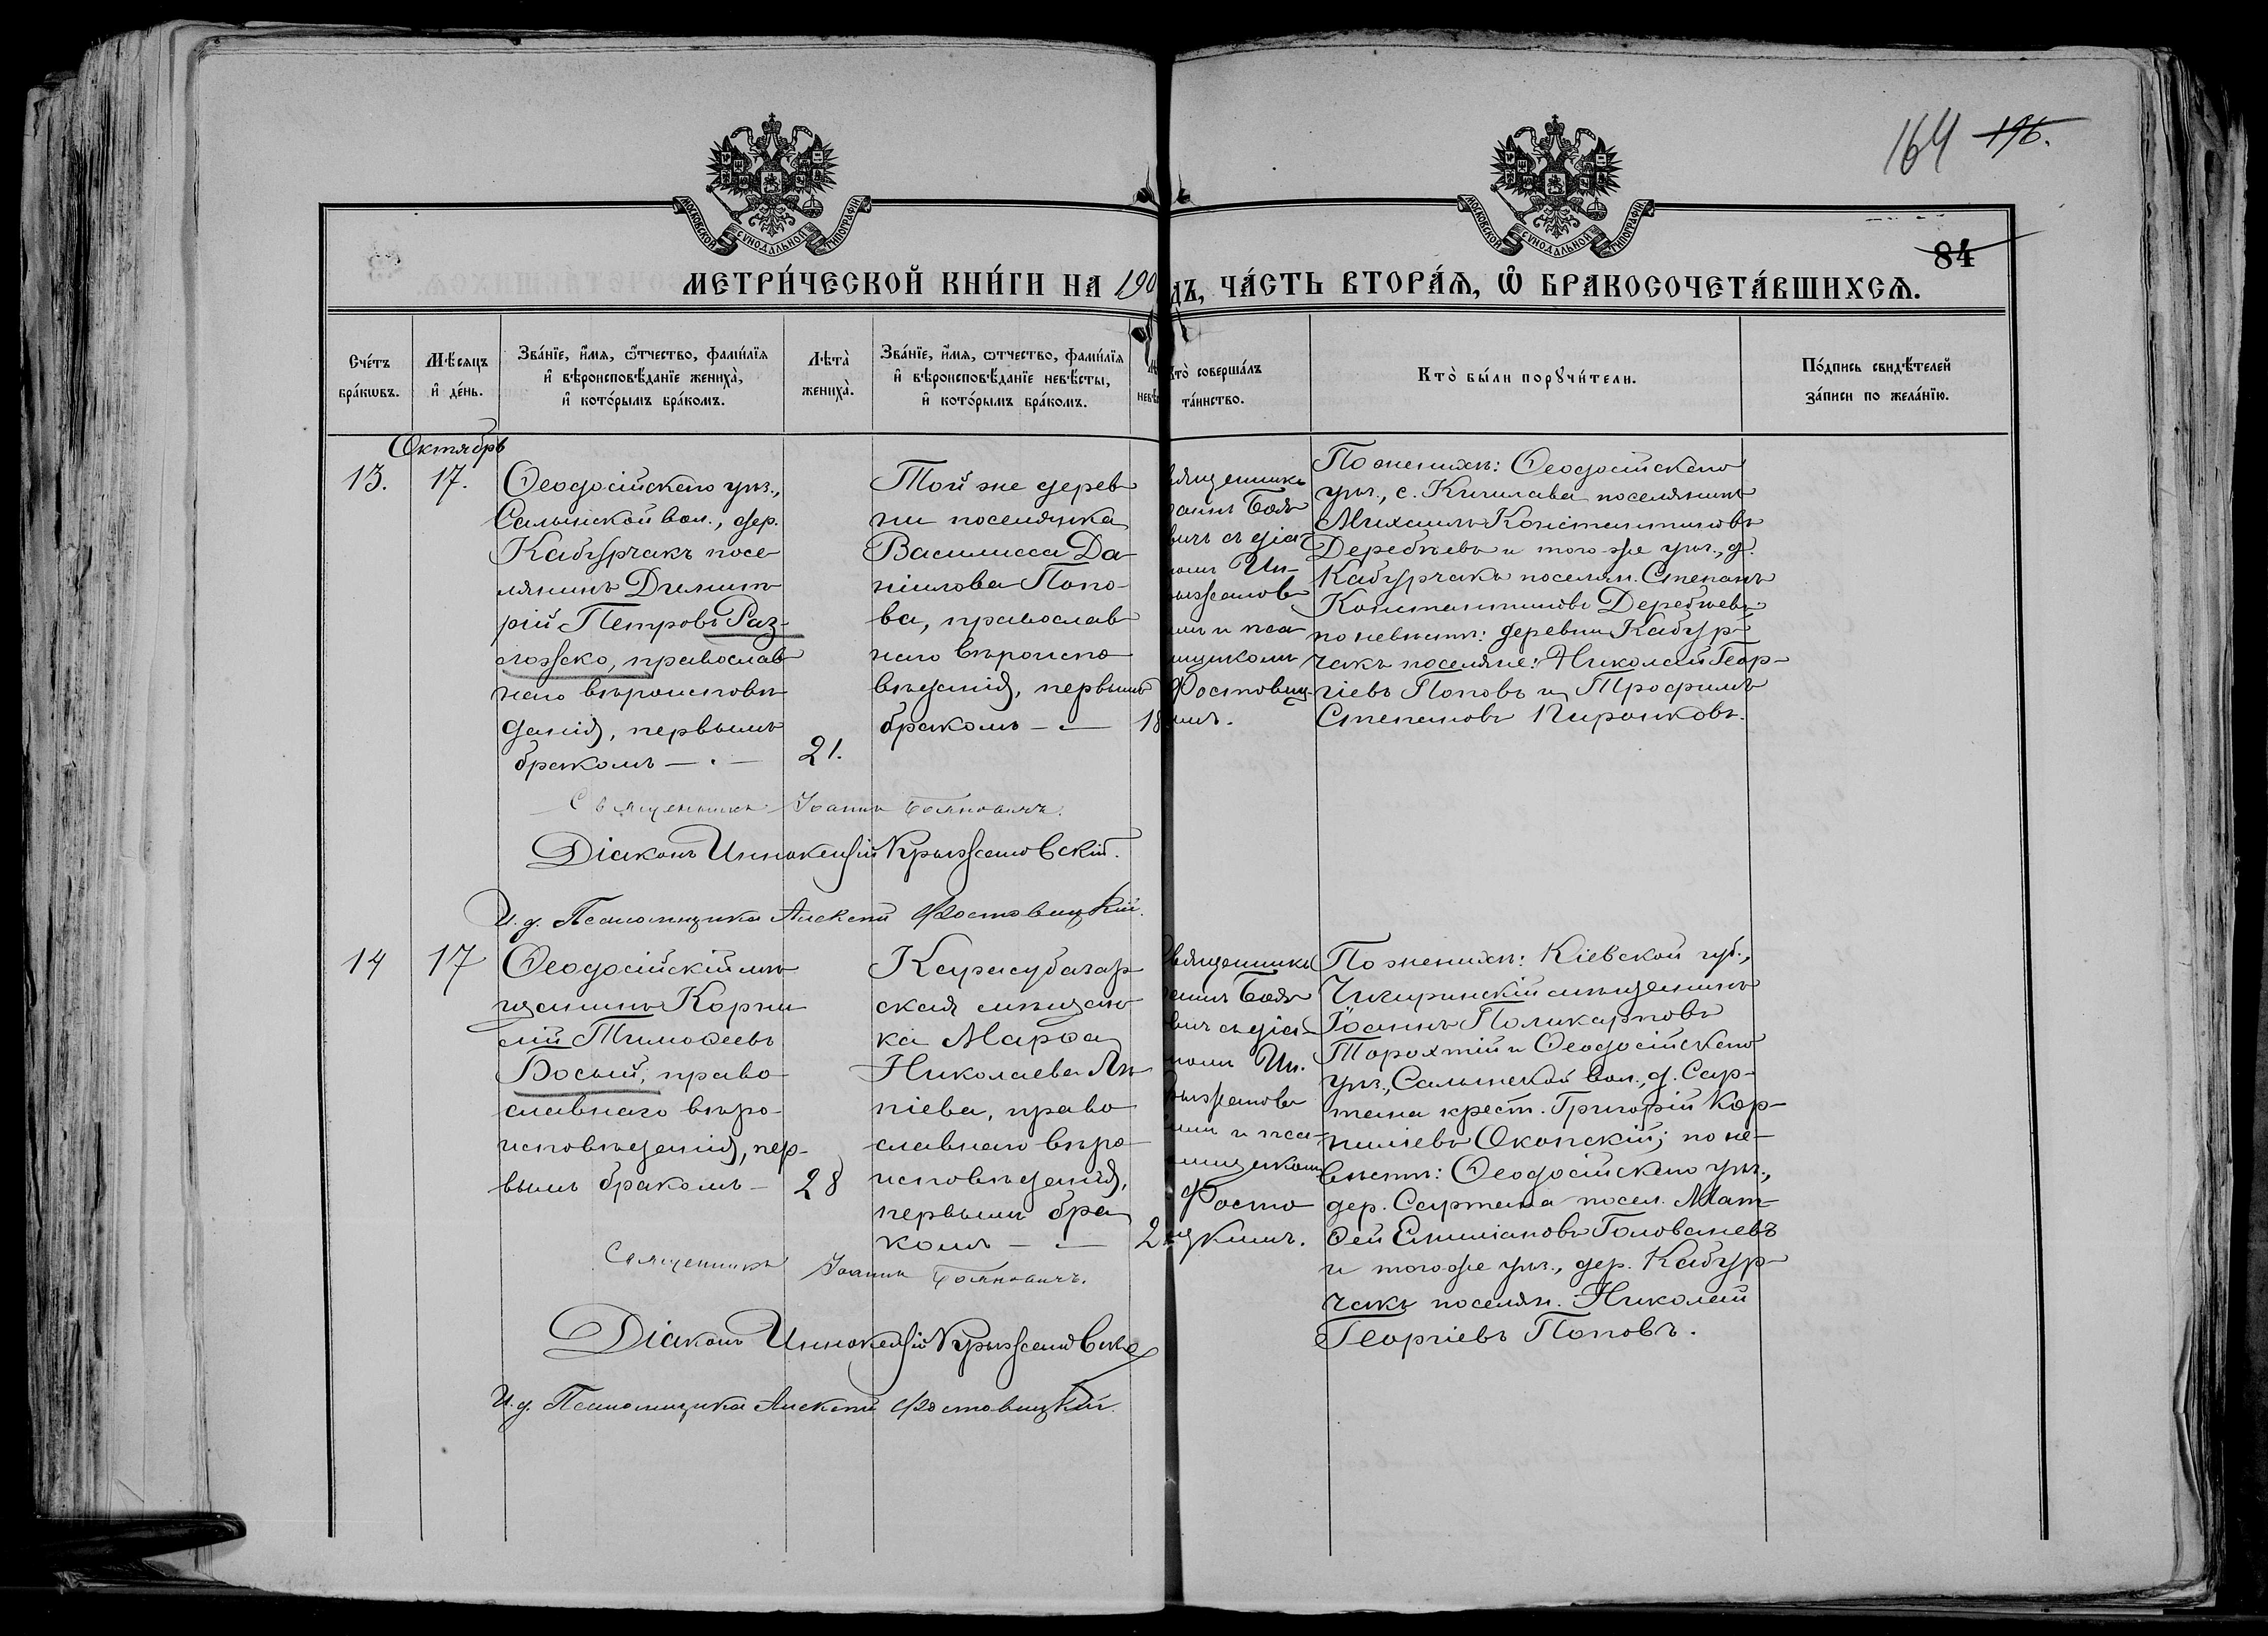 164 196.
МОСКОВСКОЙ СѴНОДАЛЬНОЙ ТИПОГРАФІИ
МОСКОВСКОЙ СѴНОДАЛЬНОЙ ТИПОГРАФІИ
84
МЕТРИ́ЧЕСКОЙ КНИ́ГИ НА 190
дъ, ЧА́СТЬ ВТОРА́Я, Ѡ БРАКОСОЧЕТА́ВШИХСЯ.
Сче́тъ бра́кωвъ.
Мѣ́сяцъ и҆ де́нь.
Зва́нїе, и҆́мя, ѻ҆́тчество, фами́лїя и҆ вѣроисповѣ́данїе жениха̀, и҆ кото́рымъ бра́комъ.
Лѣта̀ жениха̀.
Зва́нїе, и҆́мя, ѻ҆тчество, фами́лїя и҆ вѣроисповѣ́данїе невѣ́сты, и҆ кото́рымъ бра́комъ.
то̀ соверша́лъ та́инство.
Кто̀ бы́ли порꙋчи́тели.
По́дпись свидѣ́телей за́писи по жела́нїю.
Октябрь
13.
17.
Ѳеодосійскаго уѣз.,
Салынской вол., дер.
Кабурчакъ посе-
лянинъ Димит-
рій Петровъ Раз-
ложко, православ-
наго вѣроисповѣ-
данія, первымъ
бракомъ —
21.
Той же дерев-
ни поселянка
Василисса Да-
ніилова Попо-
ва, православ-
наго вѣроиспо-
вѣданія, первымъ
бракомъ —
18
вященникъ
оаннъ Боя
вичъ съ діа-
номъ Ин-
ыжанов
мъ и пса-
мщикомъ
Фостовиц-
имъ.
По женихѣ: Ѳеодосійскаго
уѣз., с. Кишлава поселянинъ
Михаилъ Константиновъ
Деребѣевъ и того же уѣз., д.
Кабурчакъ поселян. Степанъ
Константиновъ Деребѣевъ
по невѣстѣ: деревни Кабур-
чакъ поселяне: Николай Геор-
гіевъ Поповъ и Трофимъ
Степановъ Пиронковъ.
Священникъ Іоаннъ Бояновичъ.
Діаконъ Иннокентій Крыжановскій.
И. д. Псаломщика Алексѣй Фостовицкій.
14
17
Ѳеодосійскій мѣ-
щанинъ Корни-
лій Тимоѳеевъ
Босый, право-
славнаго вѣро-
исповѣданія, пер-
вымъ бракомъ —
28
Карасубазар-
ская мѣщан-
ка Марѳа
Николаева Лѣ-
піева, право-
славнаго вѣро-
исповѣданія,
первымъ бра-
комъ —
2
вященникъ
аннъ Боя
вичъ съ діа-
номъ Ин.
рыжанов
мъ и пса-
мщикомъ
Фосто
цкимъ.
По женихѣ: Кіевской губ.,
Чигиринскій мѣщанинъ
Іоаннъ Поликарповъ
Торохтій и Ѳеодосійскаго
уѣз., Салынской вол., д. Сар-
тана крест. Григорій Кор-
ниліевъ Оконскій; по не-
вѣстѣ: Ѳеодосійскаго уѣз.,
дер. Сартана посел. Мат-
ѳей Емиліановъ Голованевъ
и того же уѣз., дер. Кабур-
чакъ поселян. Николай
Георгіевъ Поповъ.
Священникъ Іоаннъ Бояновичъ.
Діаконъ Иннокентій Крыжановскій
И. д. Псаломщика Алексѣй Фостовицкій.